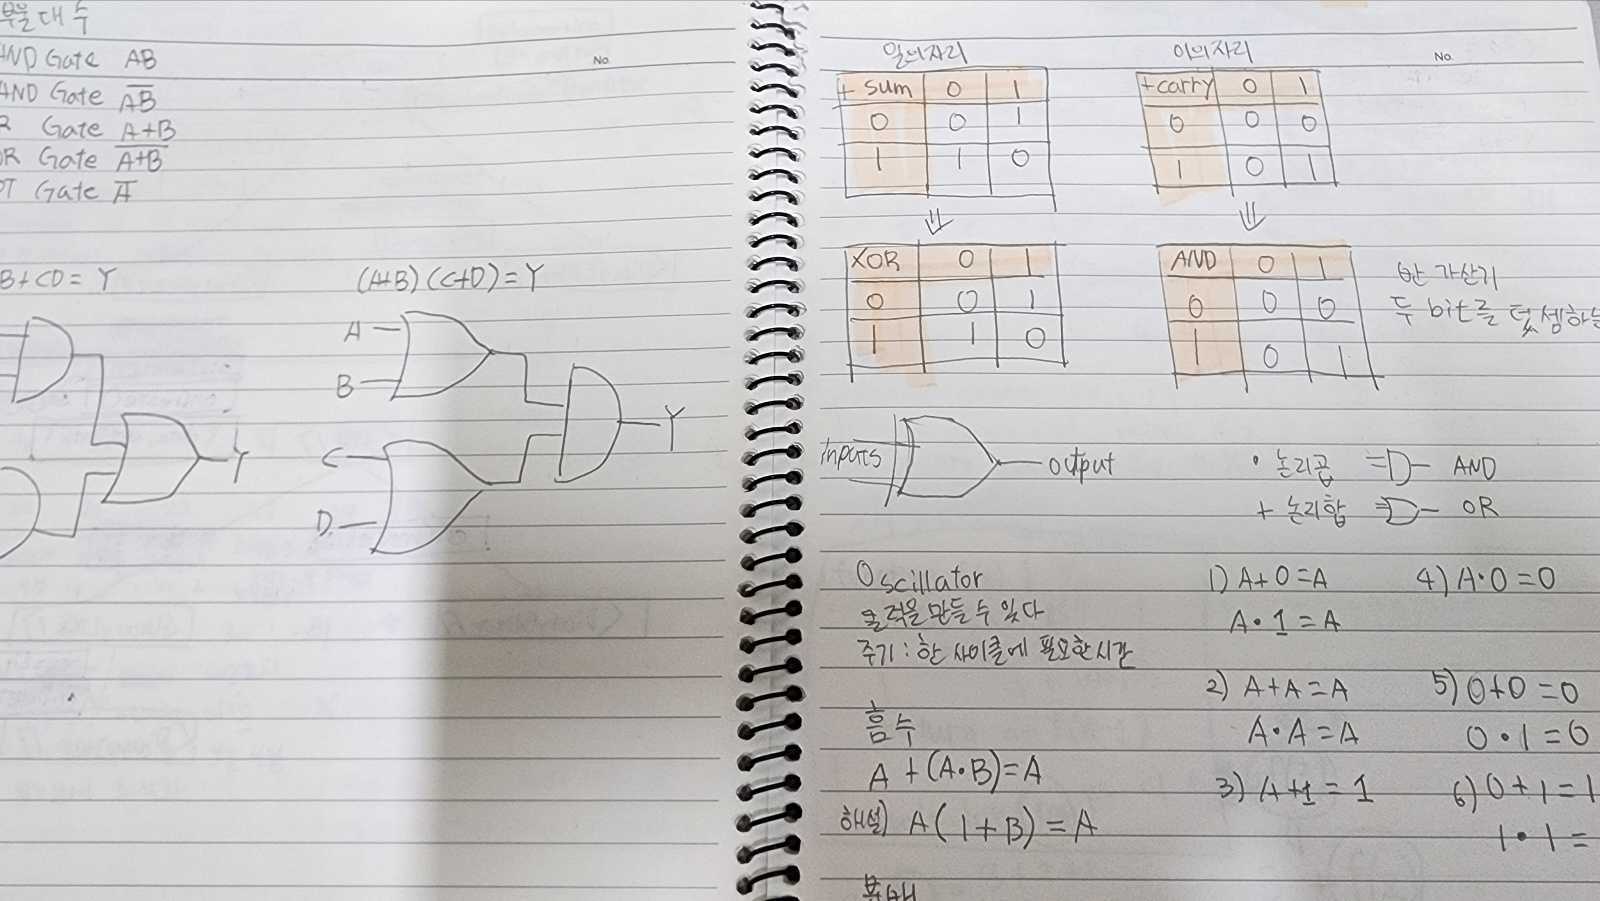 부울대수
AND Gate AB
AND Gate A̅B̅
R Gate A+B
OR Gate A̅+̅B̅
OT Gate A̅
B+CD=Y
(A+B)(C+D)=Y
A
B
C
D
Y
Y
No.
일의자리
이의자리
No.
+ sum 0 1
0 0 1
1 1 0
+carry 0 1
0 0 0
1 0 1
⇓
⇓
XOR 0 1
0 0 1
1 1 0
AND 0 1
0 0 0
1 0 1
반 가산기
두 bit를 덧셈하는
inputs
output
· 논리곱 AND
+ 논리합 OR
Oscillator
출력을 만들 수 있다
주기 : 한 사이클에 필요한 시간
흡수
A+(A·B)=A
해설) A(1+B)=A
분배
1) A+0=A
A·1=A
2) A+A=A
A·A=A
3) A+1=1
4) A·0=0
5) 0+0=0
0·1=0
6) 0+1=1
1·1=